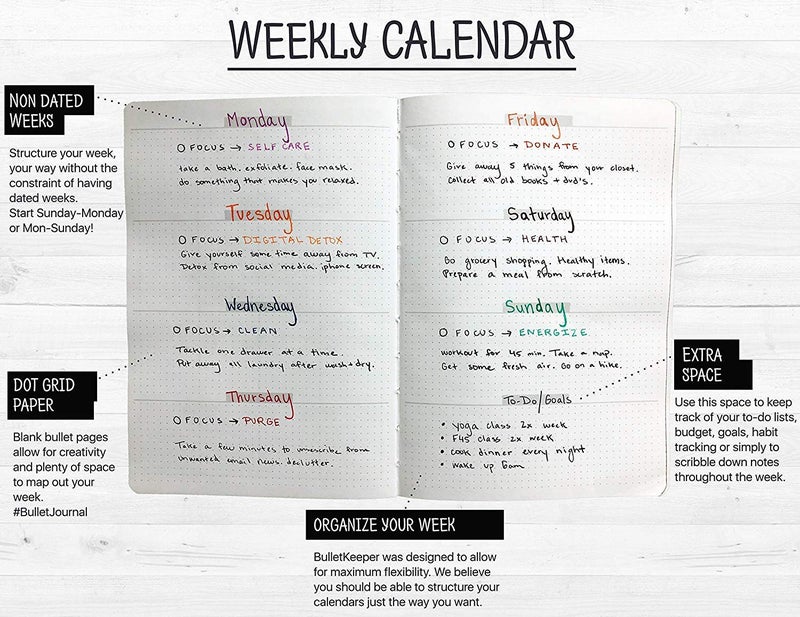 WEEKLY CALENDAR
NON DATED
WEEKS
Structure your week,
your way without the
constraint of having
dated weeks.
Start Sunday-Monday
or Mon-Sunday!
DOT GRID
PAPER
Blank bullet pages
allow for creativity
and plenty of space
to map out your
week.
#BulletJournal
Monday
O FOCUS → SELF CARE
take a bath. exfoliate. face mask.
do something that makes you relaxed.
Tuesday
O FOCUS → DIGITAL DETOX
Give yourself some time away from TV.
Detox from social media. iphone screen.
Wednesday
O FOCUS → CLEAN
Tackle one drawer at a time.
Put away all laundry after wash + dry.
Thursday
O FOCUS → PURGE
Take a few minutes to unsescribe from
unwanted email news. declutter.
Friday
O FOCUS → DONATE
Give away 5 things from your closet.
Collect all old books + dvd's.
Saturday
O FOCUS → HEALTH
Go grocery shopping. Healthy items.
Prepare a meal from scratch.
Sunday
O FOCUS → ENERGIZE
workout for 45 min. Take a nap.
Get some fresh air. Go on a hike.
To-Do/Goals
• yoga class 2x week
• F45 class 2x week
• cook dinner every night
• wake up 6am
EXTRA
SPACE
Use this space to keep
track of your to-do lists,
budget, goals, habit
tracking or simply to
scribble down notes
throughout the week.
ORGANIZE YOUR WEEK
BulletKeeper was designed to allow
for maximum flexibility. We believe
you should be able to structure your
calendars just the way you want.